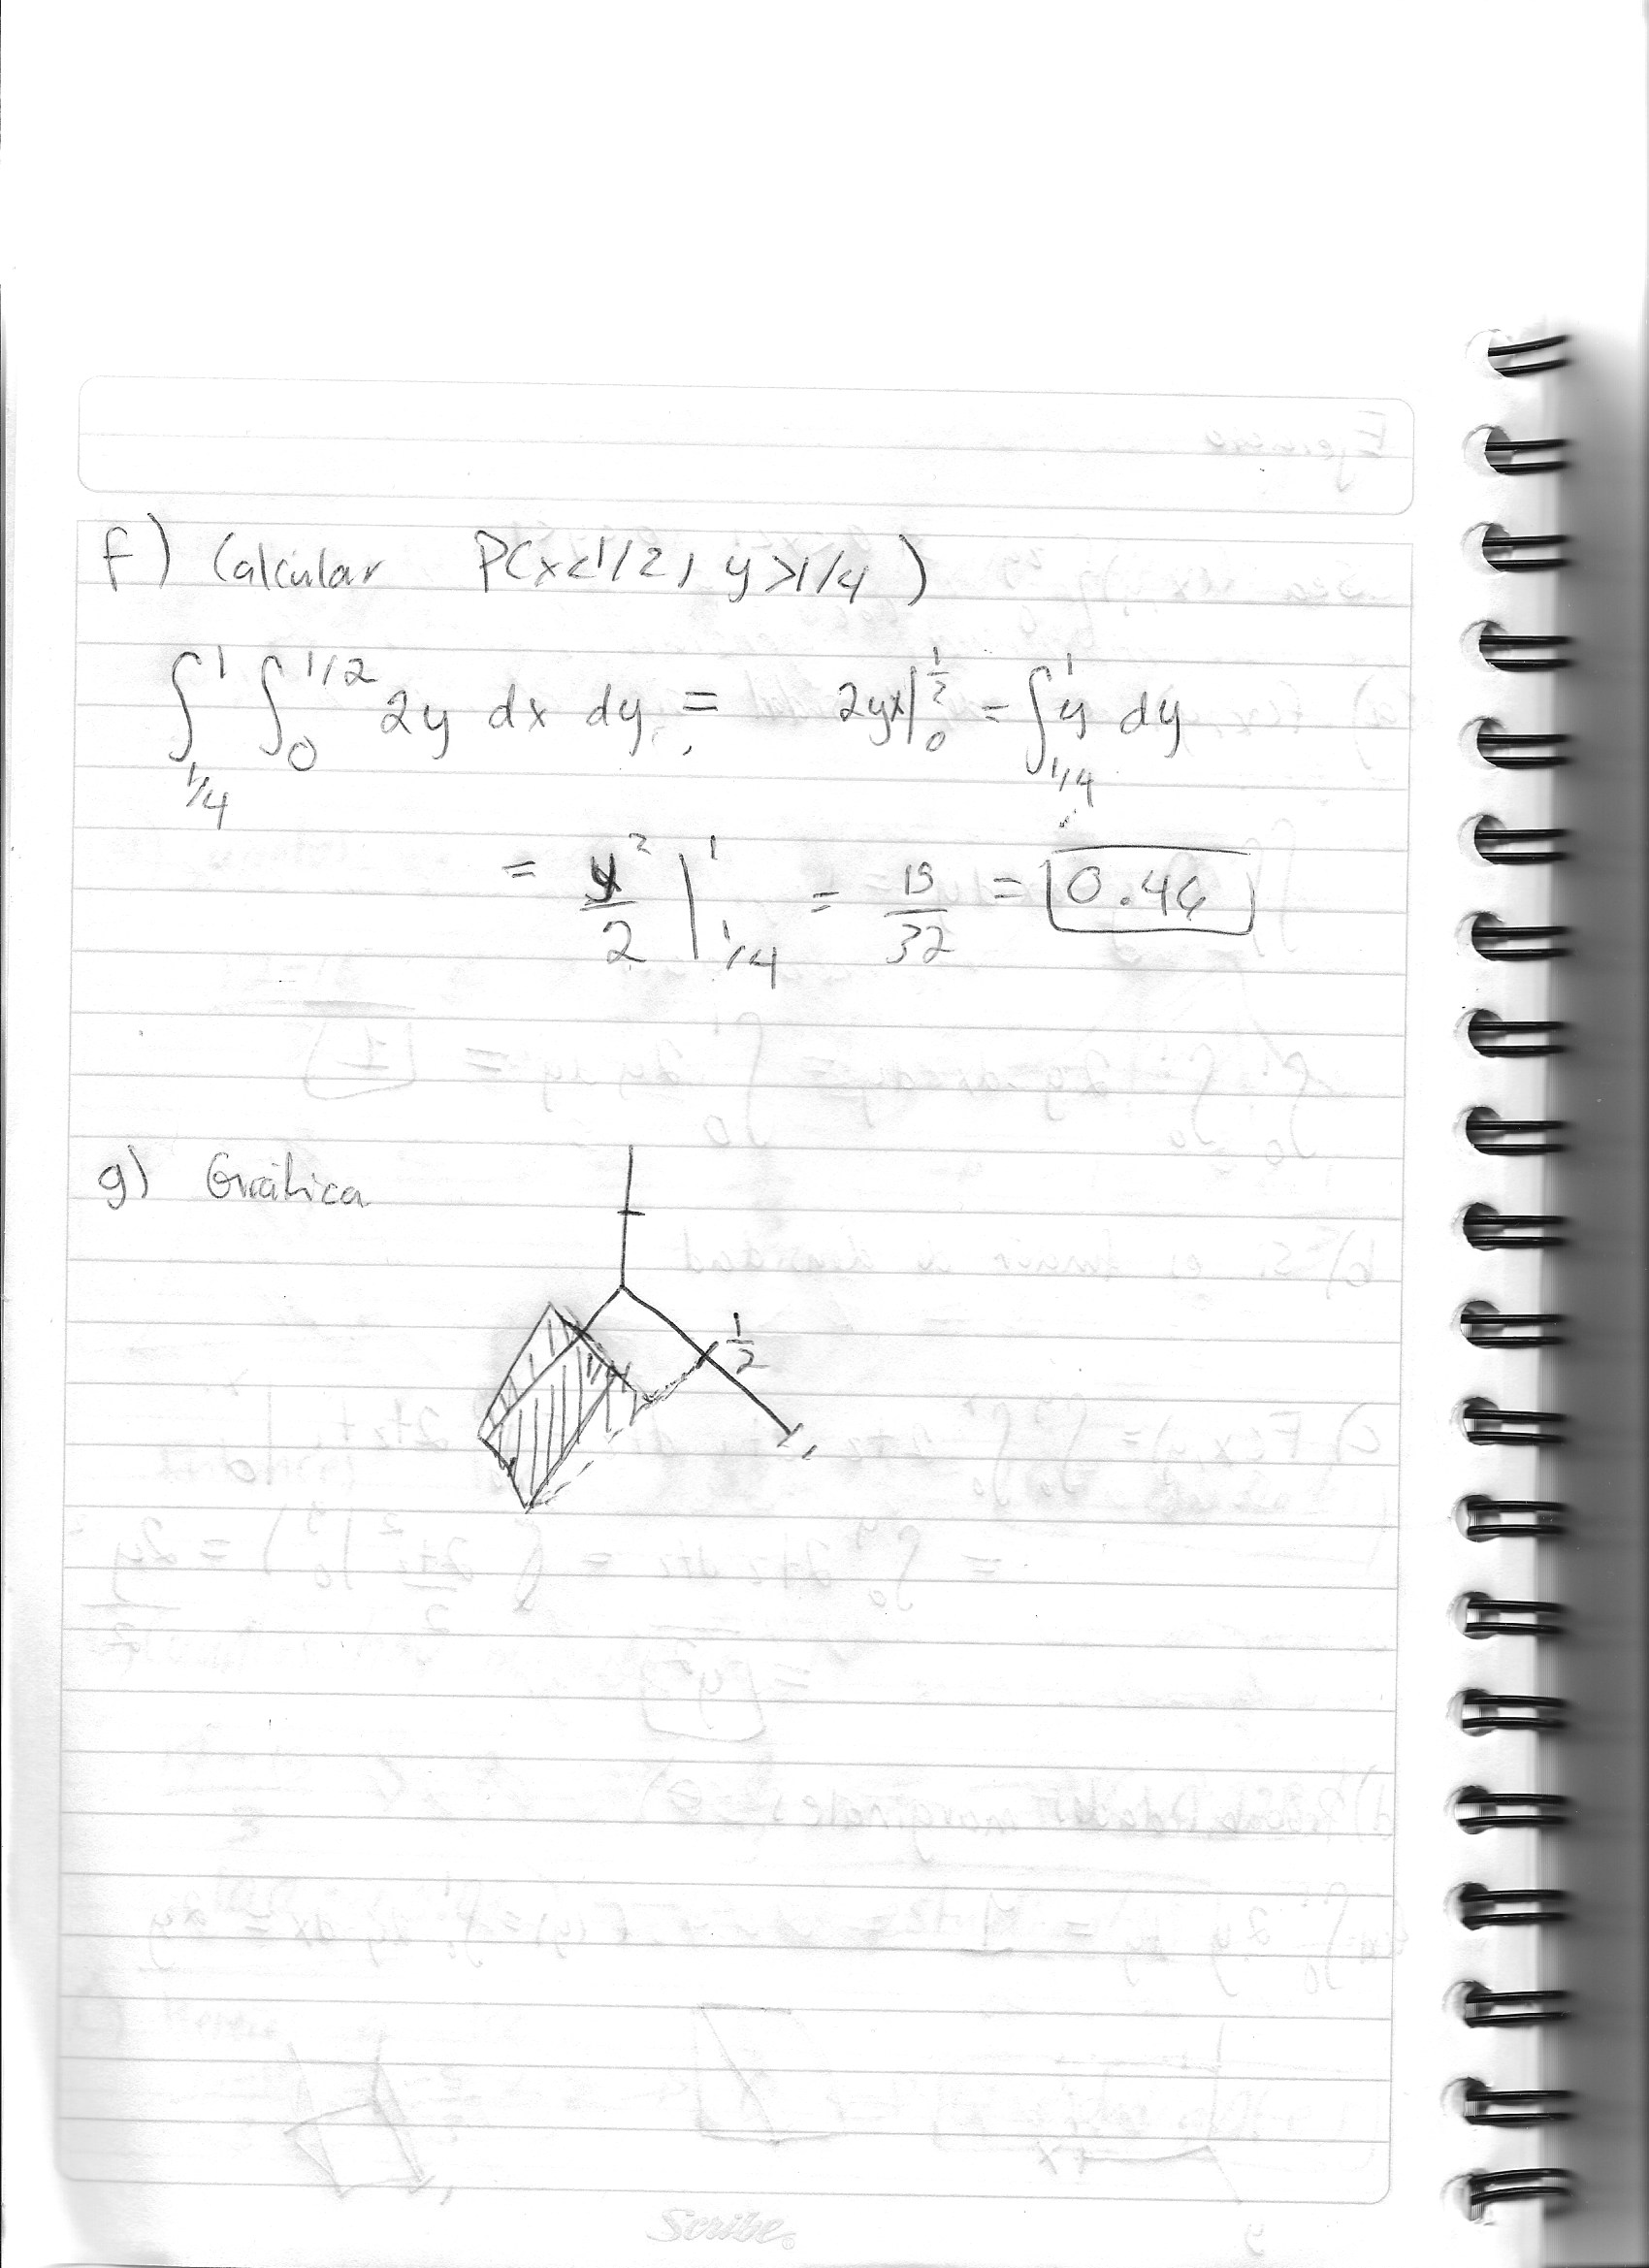 f) Calcular P(x<1/2, y>1/4)
∫_{1/4}^{1} ∫_{0}^{1/2} 2y dx dy = 2yx|_{0}^{1/2} = ∫_{1/4}^{1} y dy
= y²/2 |_{1/4}^{1} = 15/32 = 0.46
g) Gráfica
1/2
1/4
1
Scribe